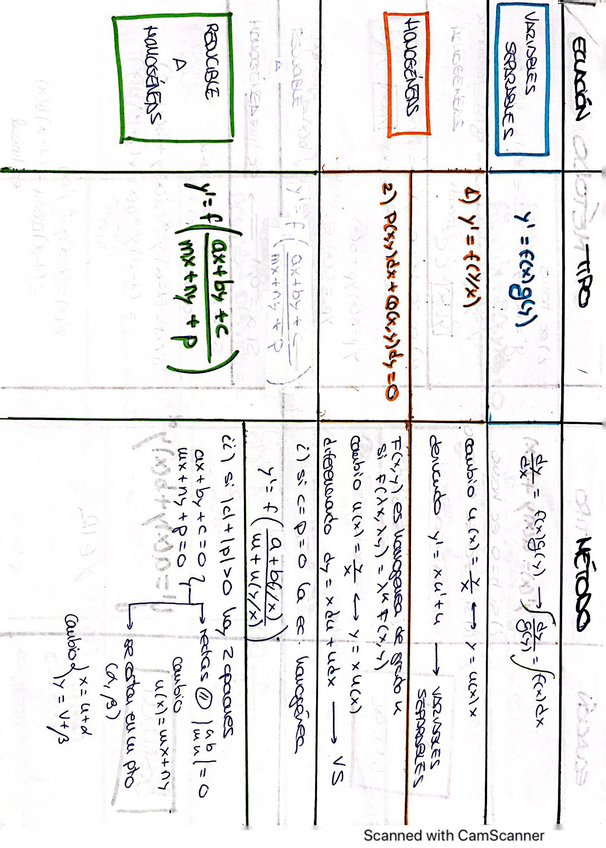 ECUACIÓN
TIPO
MÉTODO
VARIABLES
SEPARABLES
y' = f(x)g(y)
dy/dx = f(x)g(y) → ∫ dy/g(y) = ∫ f(x)dx
HOMOGÉNEAS
1) y' = f(y/x)
cambio u(x) = y/x ↔ y = u(x)x
derivando y' = xu' + u → VARIABLES
SEPARABLES
2) P(x,y)dx + Q(x,y)dy = 0
F(x,y) es homogénea de grado n
si F(λx, λy) = λⁿ F(x,y)
cambio u(x) = y/x ↔ y = x u(x)
diferenciando dy = x du + u dx → VS
REDUCIBLE
A
HOMOGÉNEAS
y' = f( (ax+by+c) / (mx+ny+p) )
i) si c=p=0 la ec. homogénea
y' = f( (a+b(y/x)) / (m+n(y/x)) )
ii) si |c|+|p|>0 hay 2 opciones
ax+by+c=0
mx+ny+p=0
rectas ∥ |a b / m n| = 0
cambio
u(x) = mx+ny
se cortan en un pto
(α, β)
cambio { x = u+α
y = v+β
Scanned with CamScanner